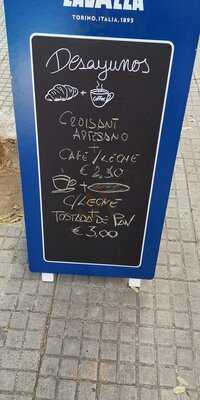 LAVAZZA
TORINO, ITALIA, 1895
Desayunos
+
Coffee
CROISANT
ARTESANO
+
CAFÉ/LECHE
€ 2,30
+
C/LECHE
+
TOSTADA DE PAN
€ 3,00